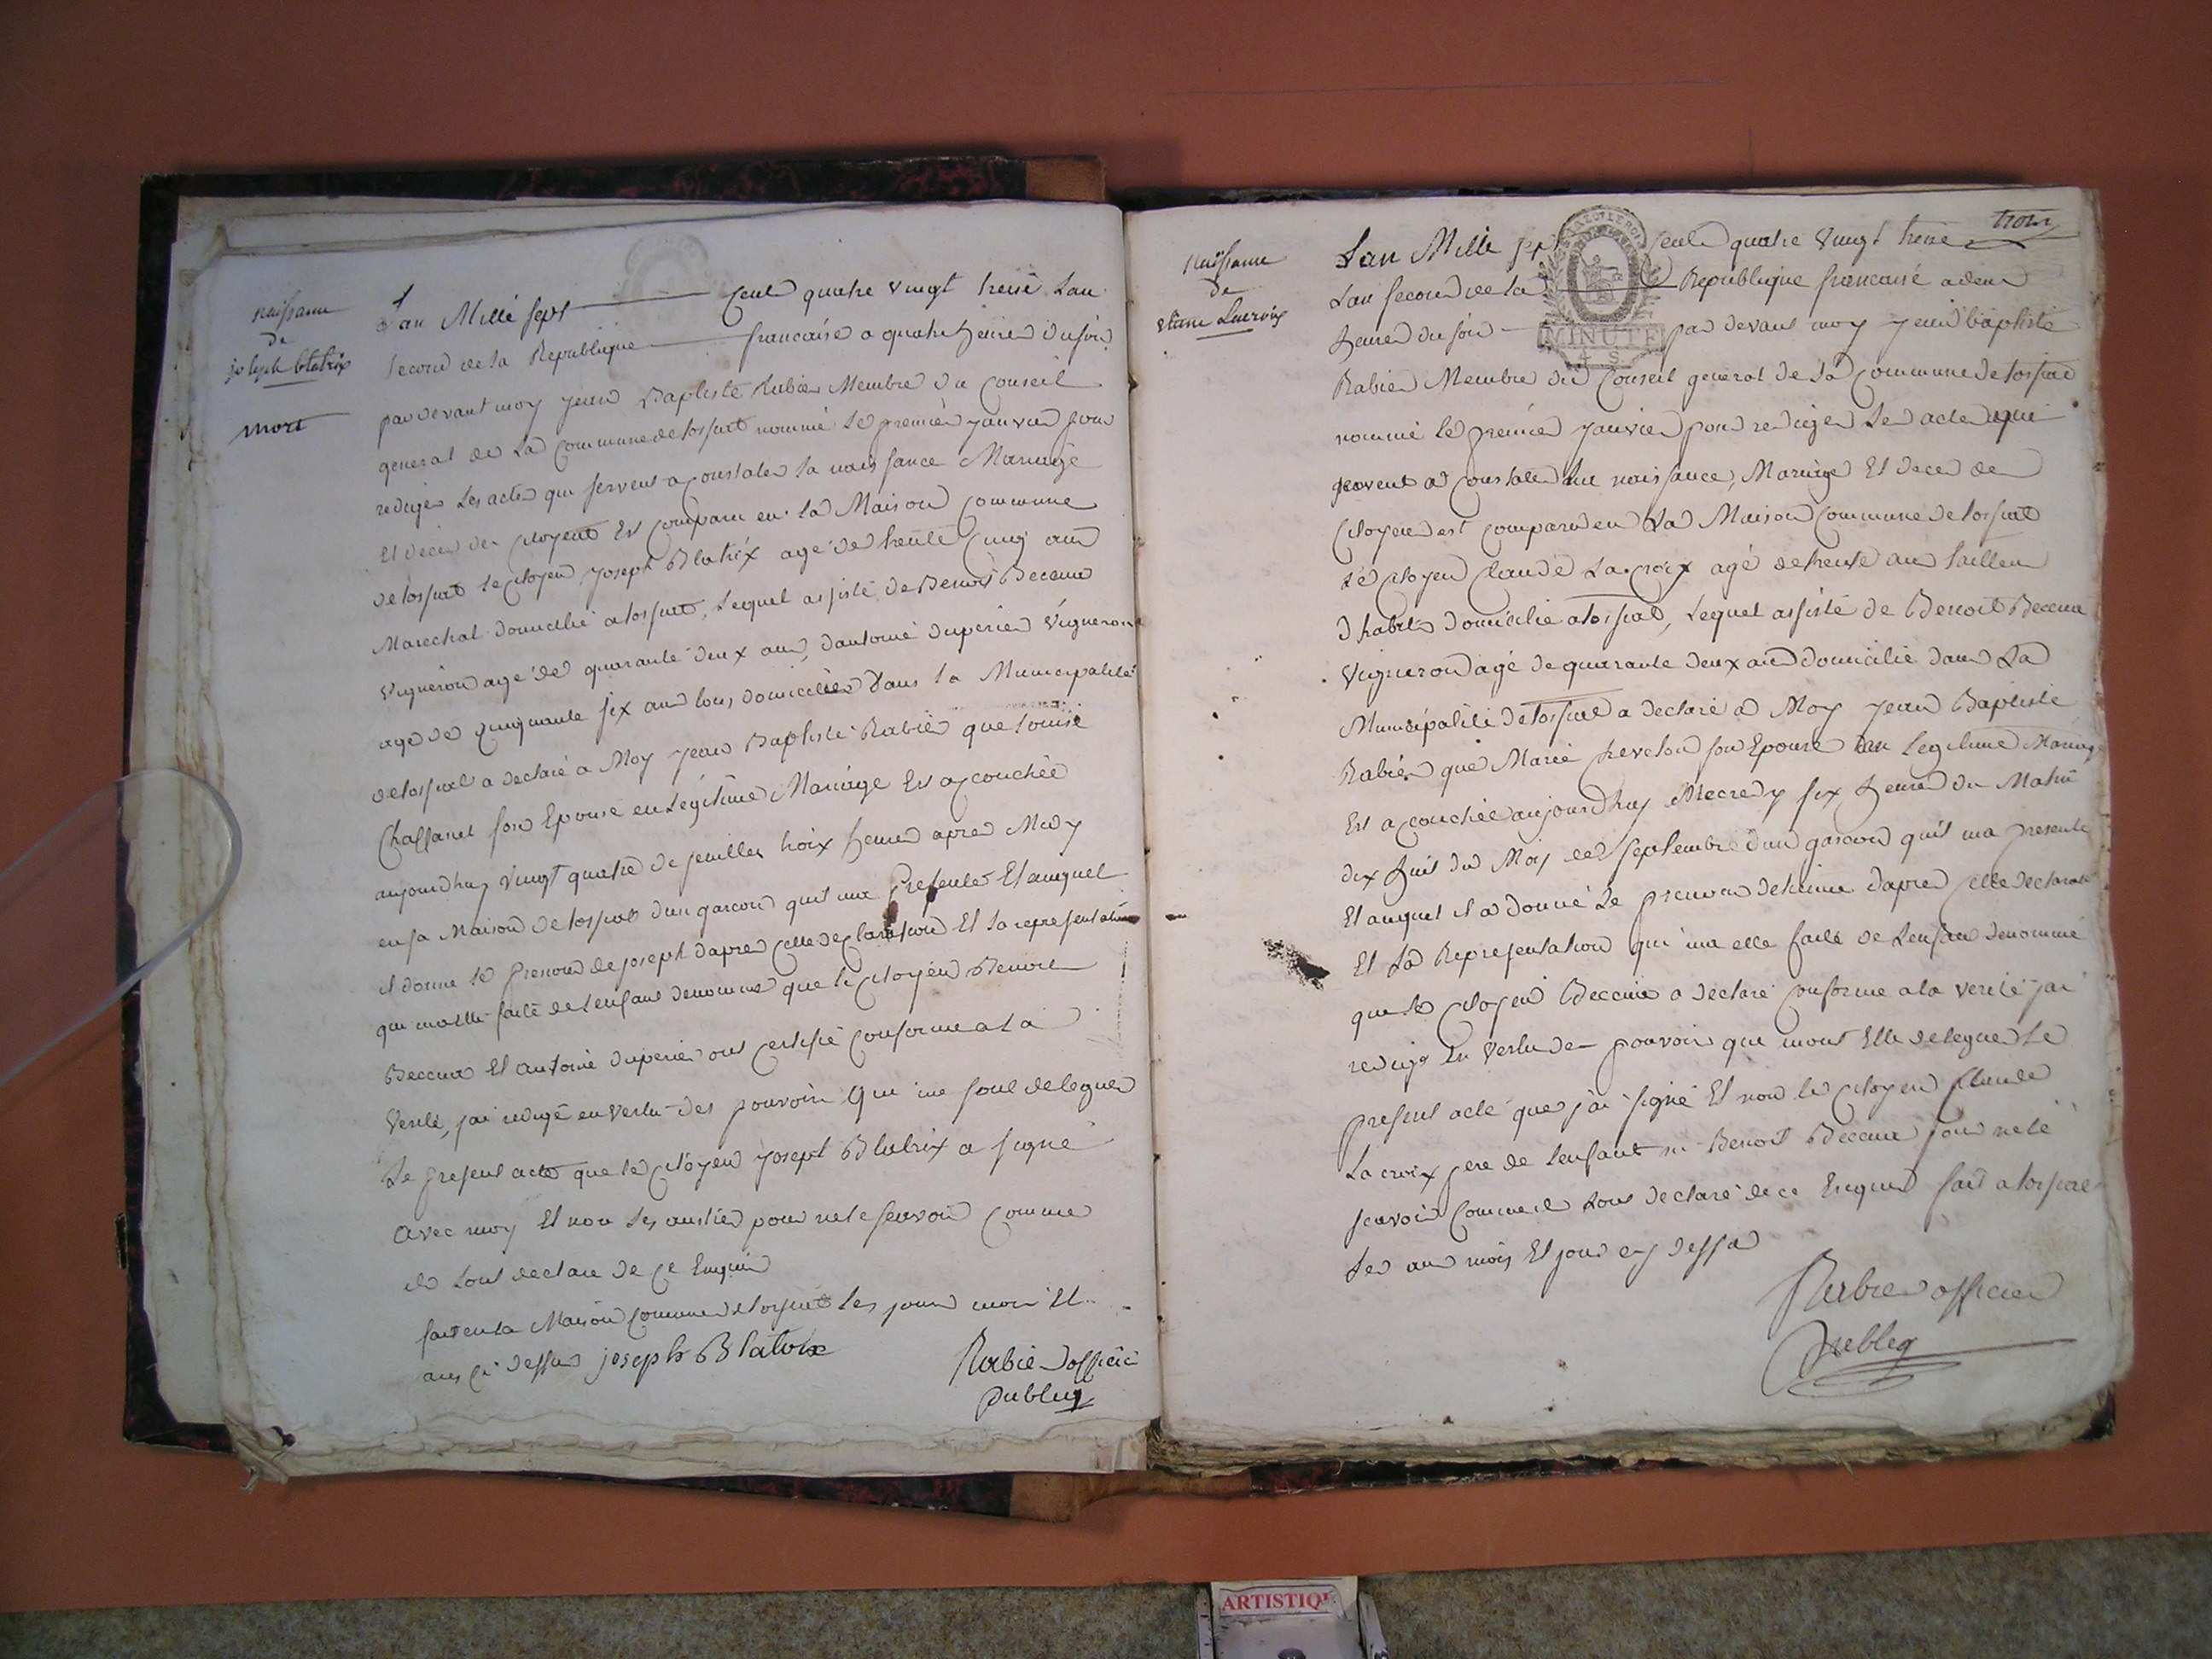 naissance
de
joseph blatrix
mort
L'an Mille sept cents quatre vingt treise Lan
second de la Republique francaise a quatre heures du soir
par devant moy jean Baptiste Rabier Membre du Conseil
general de La Commune de nommé le premier janvier pour
rediger Les actes qui servent a constater la naissance Mariage
Et deces des citoyens Est comparu en la Maison commune
de le citoyen joseph Blatrix agé de trente cinq ans
Marechal domicilié a Lequel assisté de Benoit
vigneron agé de quarante deux ans, dantoine duperier vigneron
agé de cinquante six ans tous domiciliés dans la Municipalité
de a declaré a Moy jean Baptiste Rabier que louise
son Epouse en Legitime Mariage Est accouchée
aujourdhuy vingt quatre de juillet troix heures apres Midy
en sa Maison de dun garcon quil ma presenté Et auquel
il donne le prenom de joseph dapres cette declaration Et la representation
qui ma elle faite de lenfant denommé que le citoyen Benoit
Et antoine duperier ont certifié conforme a la
verité, jai redigé en vertu des pouvoirs qui me sont delegues
Le present acte que le citoyen joseph Blatrix a signé
avec moy Et non les autres pour ne le scavoir comme
ils Lont declaré de ce Enquis
fait en la Maison commune les jours mois Et
ans ci dessus joseph Blatrix
Rabier officier
publiq
trois
naissance
de
Lacroix
Lan Mille sept cents quatre vingt treise
Lan second de la Republique francaise a deux
heures du soir par devant moy jean baptiste
MINUTE
4 S
Rabier Membre du Conseil general de la Commune de
nommé le premier janvier pour rediger Les actes qui
servent a constater Les naissance, Mariage Et deces des
Citoyens est comparu en La Maison Commune de
le citoyen Claude Lacroix agé de trente ans tailleur
dhabits domicilié a Lequel assisté de Benoit
vigneron agé de quarante deux ans domicilié dans La
Municipalité de a declaré a Moy jean Baptiste
Rabier que Marie son Epouse en Legitime Mariage
Est accouchée aujourdhuy Mecredy six heures du Matin
dix huit du Mois de septembre dun garcon quil ma presenté
Et auquel il a donné le prenom dapres cette declaration
Et La Representation qui ma elle faite de Lenfant denommé
que le citoyen a declaré conforme a la verité jai
redigé en vertu des pouvoirs que mont Elle delegues Le
present acte que jai signé Et non le citoyen Claude
Lacroix pere de lenfant ni Benoit pour ne le
scavoir Comme il Lont declaré de ce Enquis fait a
Les ans mois Et jour cy dessus
Rabier officier
publiq
ARTISTIQ